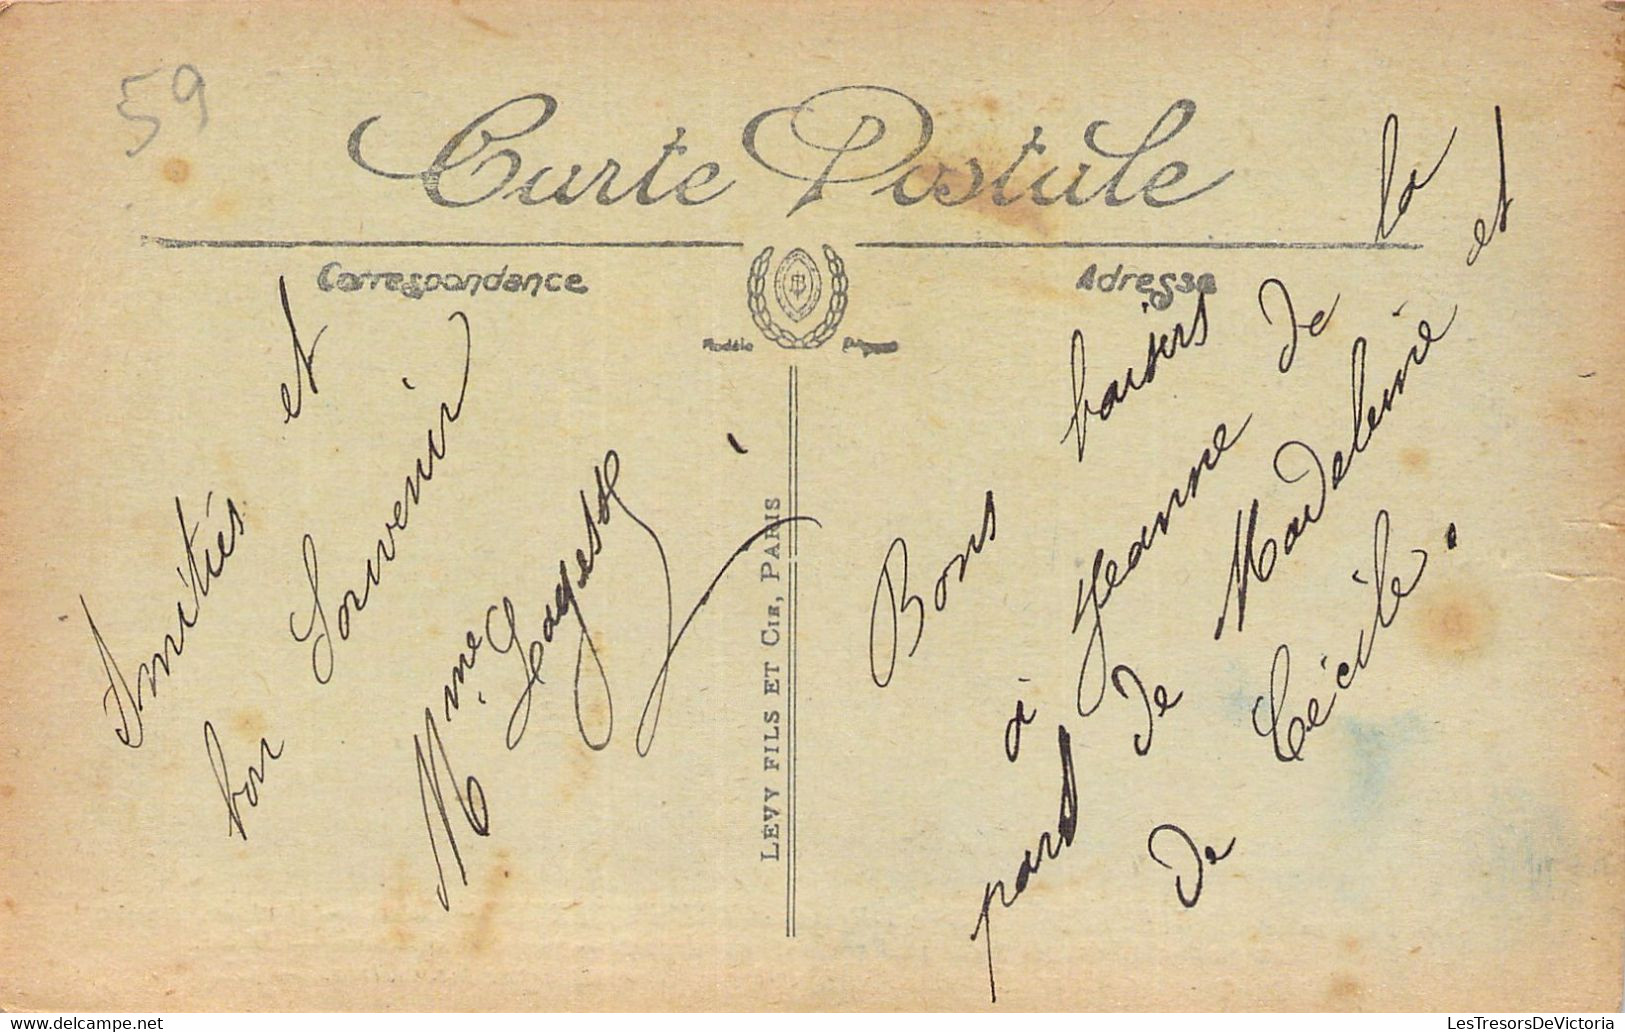 59
Carte Postale
Correspondance
Adresse
Modèle Déposé
Amitiés et
bon Souvenir
Mme
LEVY FILS ET CIE, PARIS
Bons baisers
à Jeanne de la
part de Madeleine et
de Cécile.
delcampe.net
LesTresorsDeVictoria